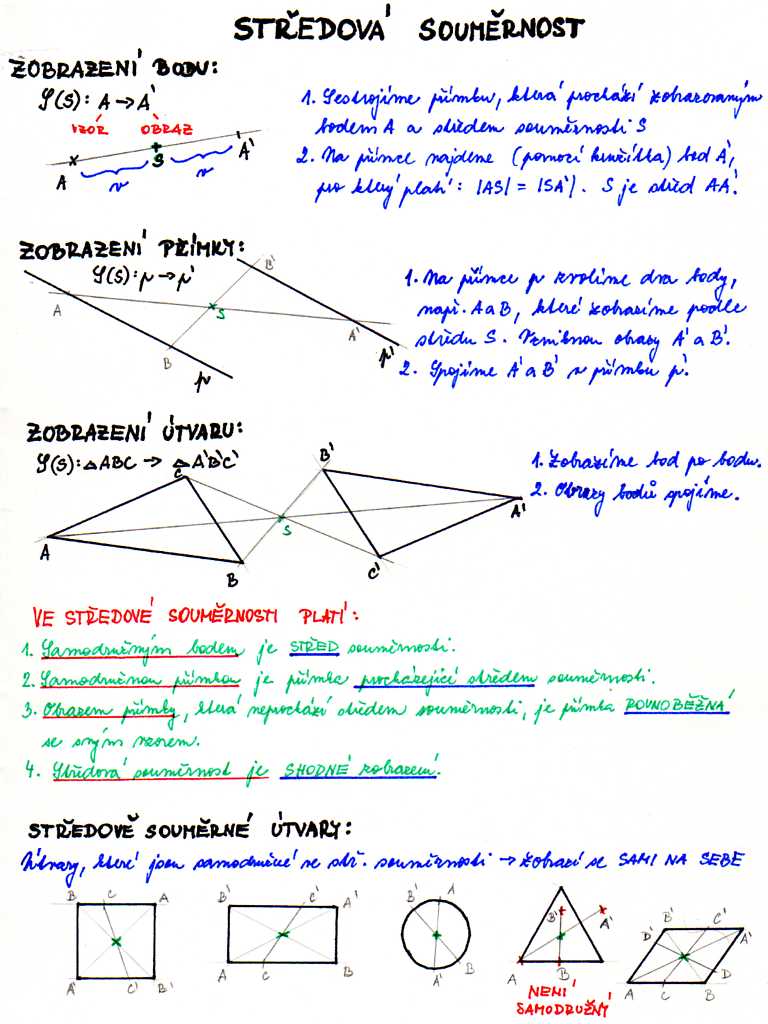 STŘEDOVÁ SOUMĚRNOST
ZOBRAZENÍ BODU:
S(S): A → A'
VZOR OBRAZ
A S A'
v v
1. Sestrojíme přímku, která prochází zobrazovaným
bodem A a středem souměrnosti S
2. Na přímce najdeme (pomocí kružítka) bod A',
pro který platí: |AS| = |SA'|. S je střed AA'.
ZOBRAZENÍ PŘÍMKY:
S(S): p → p'
A B S B' A' p p'
1. Na přímce p zvolíme dva body,
např. A a B, které zobrazíme podle
středu S. Vzniknou obrazy A' a B'.
2. Spojíme A' a B' v přímku p'.
ZOBRAZENÍ ÚTVARU:
S(S): △ABC → △A'B'C'
C B' A S A' B C'
1. Zobrazíme bod po bodu.
2. Obrazy bodů spojíme.
VE STŘEDOVÉ SOUMĚRNOSTI PLATÍ:
1. Samodružným bodem je STŘED souměrnosti.
2. Samodružnou přímkou je přímka procházející středem souměrnosti.
3. Obrazem přímky, která neprochází středem souměrnosti, je přímka ROVNOBĚŽNÁ
se svým vzorem.
4. Středová souměrnost je SHODNÉ zobrazení.
STŘEDOVĚ SOUMĚRNÉ ÚTVARY:
Útvary, které jsou samodružné ve stř. souměrnosti → zobrazí se SAMI NA SEBE
B C A B' C' A' B' A B' A' B' C'
D' A'
A' C' B' A C B A' B A B A C B D
NENÍ
SAMODRUŽNÝ